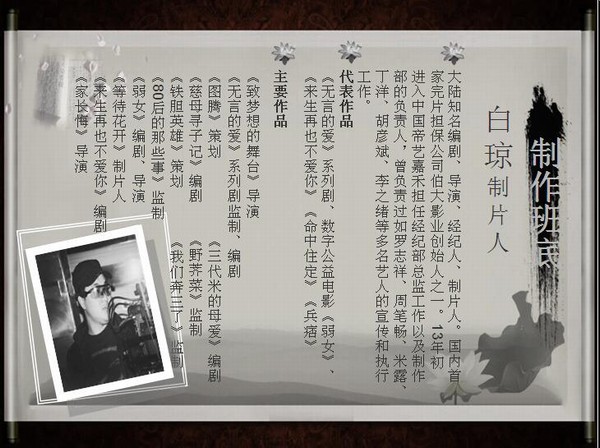 制作班底
白琼 制片人
大陆知名编剧、导演、经纪人、制片人。国内首
家完片担保公司伯大影业创始人之一。13年初
进入中国帝艺嘉禾担任经纪部总监工作以及制作
部的负责人，曾负责过如罗志祥、周笔畅、米露、
丁洋、胡彦斌、李之绪等多名艺人的宣传和执行
工作。
代表作品
《无言的爱》系列剧、数字公益电影《弱女》、
《来生再也不爱你》《命中住定》《兵痞》
主要作品
《致梦想的舞台》导演
《无言的爱》系列剧监制、编剧
《图腾》策划 《三代米的母爱》编剧
《慈母寻子记》编剧 《野荠菜》监制
《铁胆英雄》策划 《我们奔三了》监制
《80后的那些事》监制
《弱女》编剧、导演
《等待花开》制片人
《来生再也不爱你》编剧
《家长悔》导演